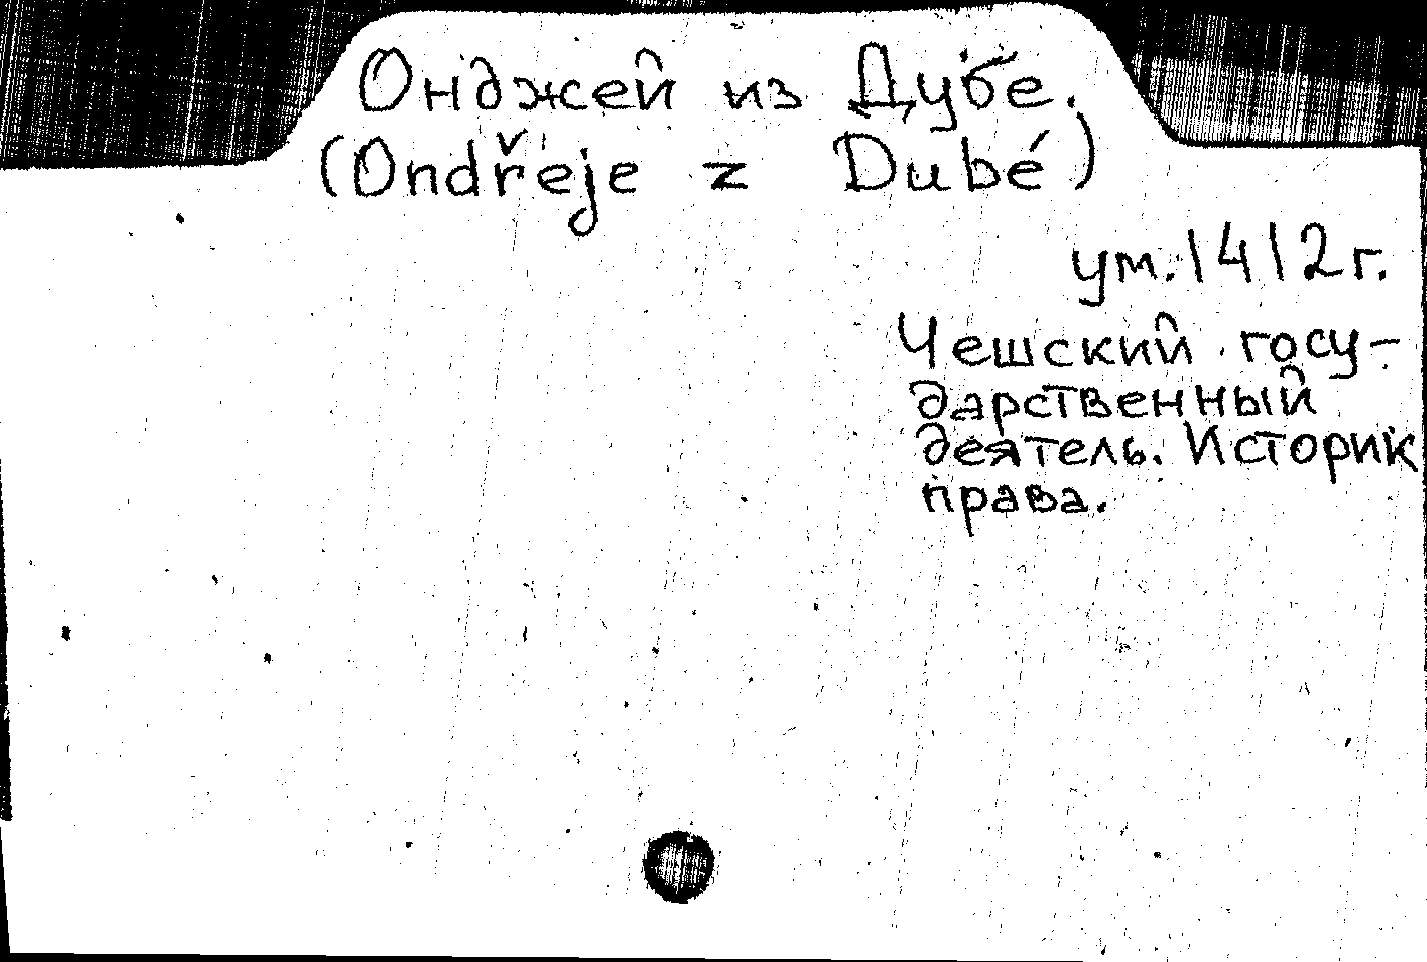 Онджей из Дубе.
(Ondřeje z Dubé)
ум. 1412 г.
Чешский госу-
дарственный
деятель. Историк
права.